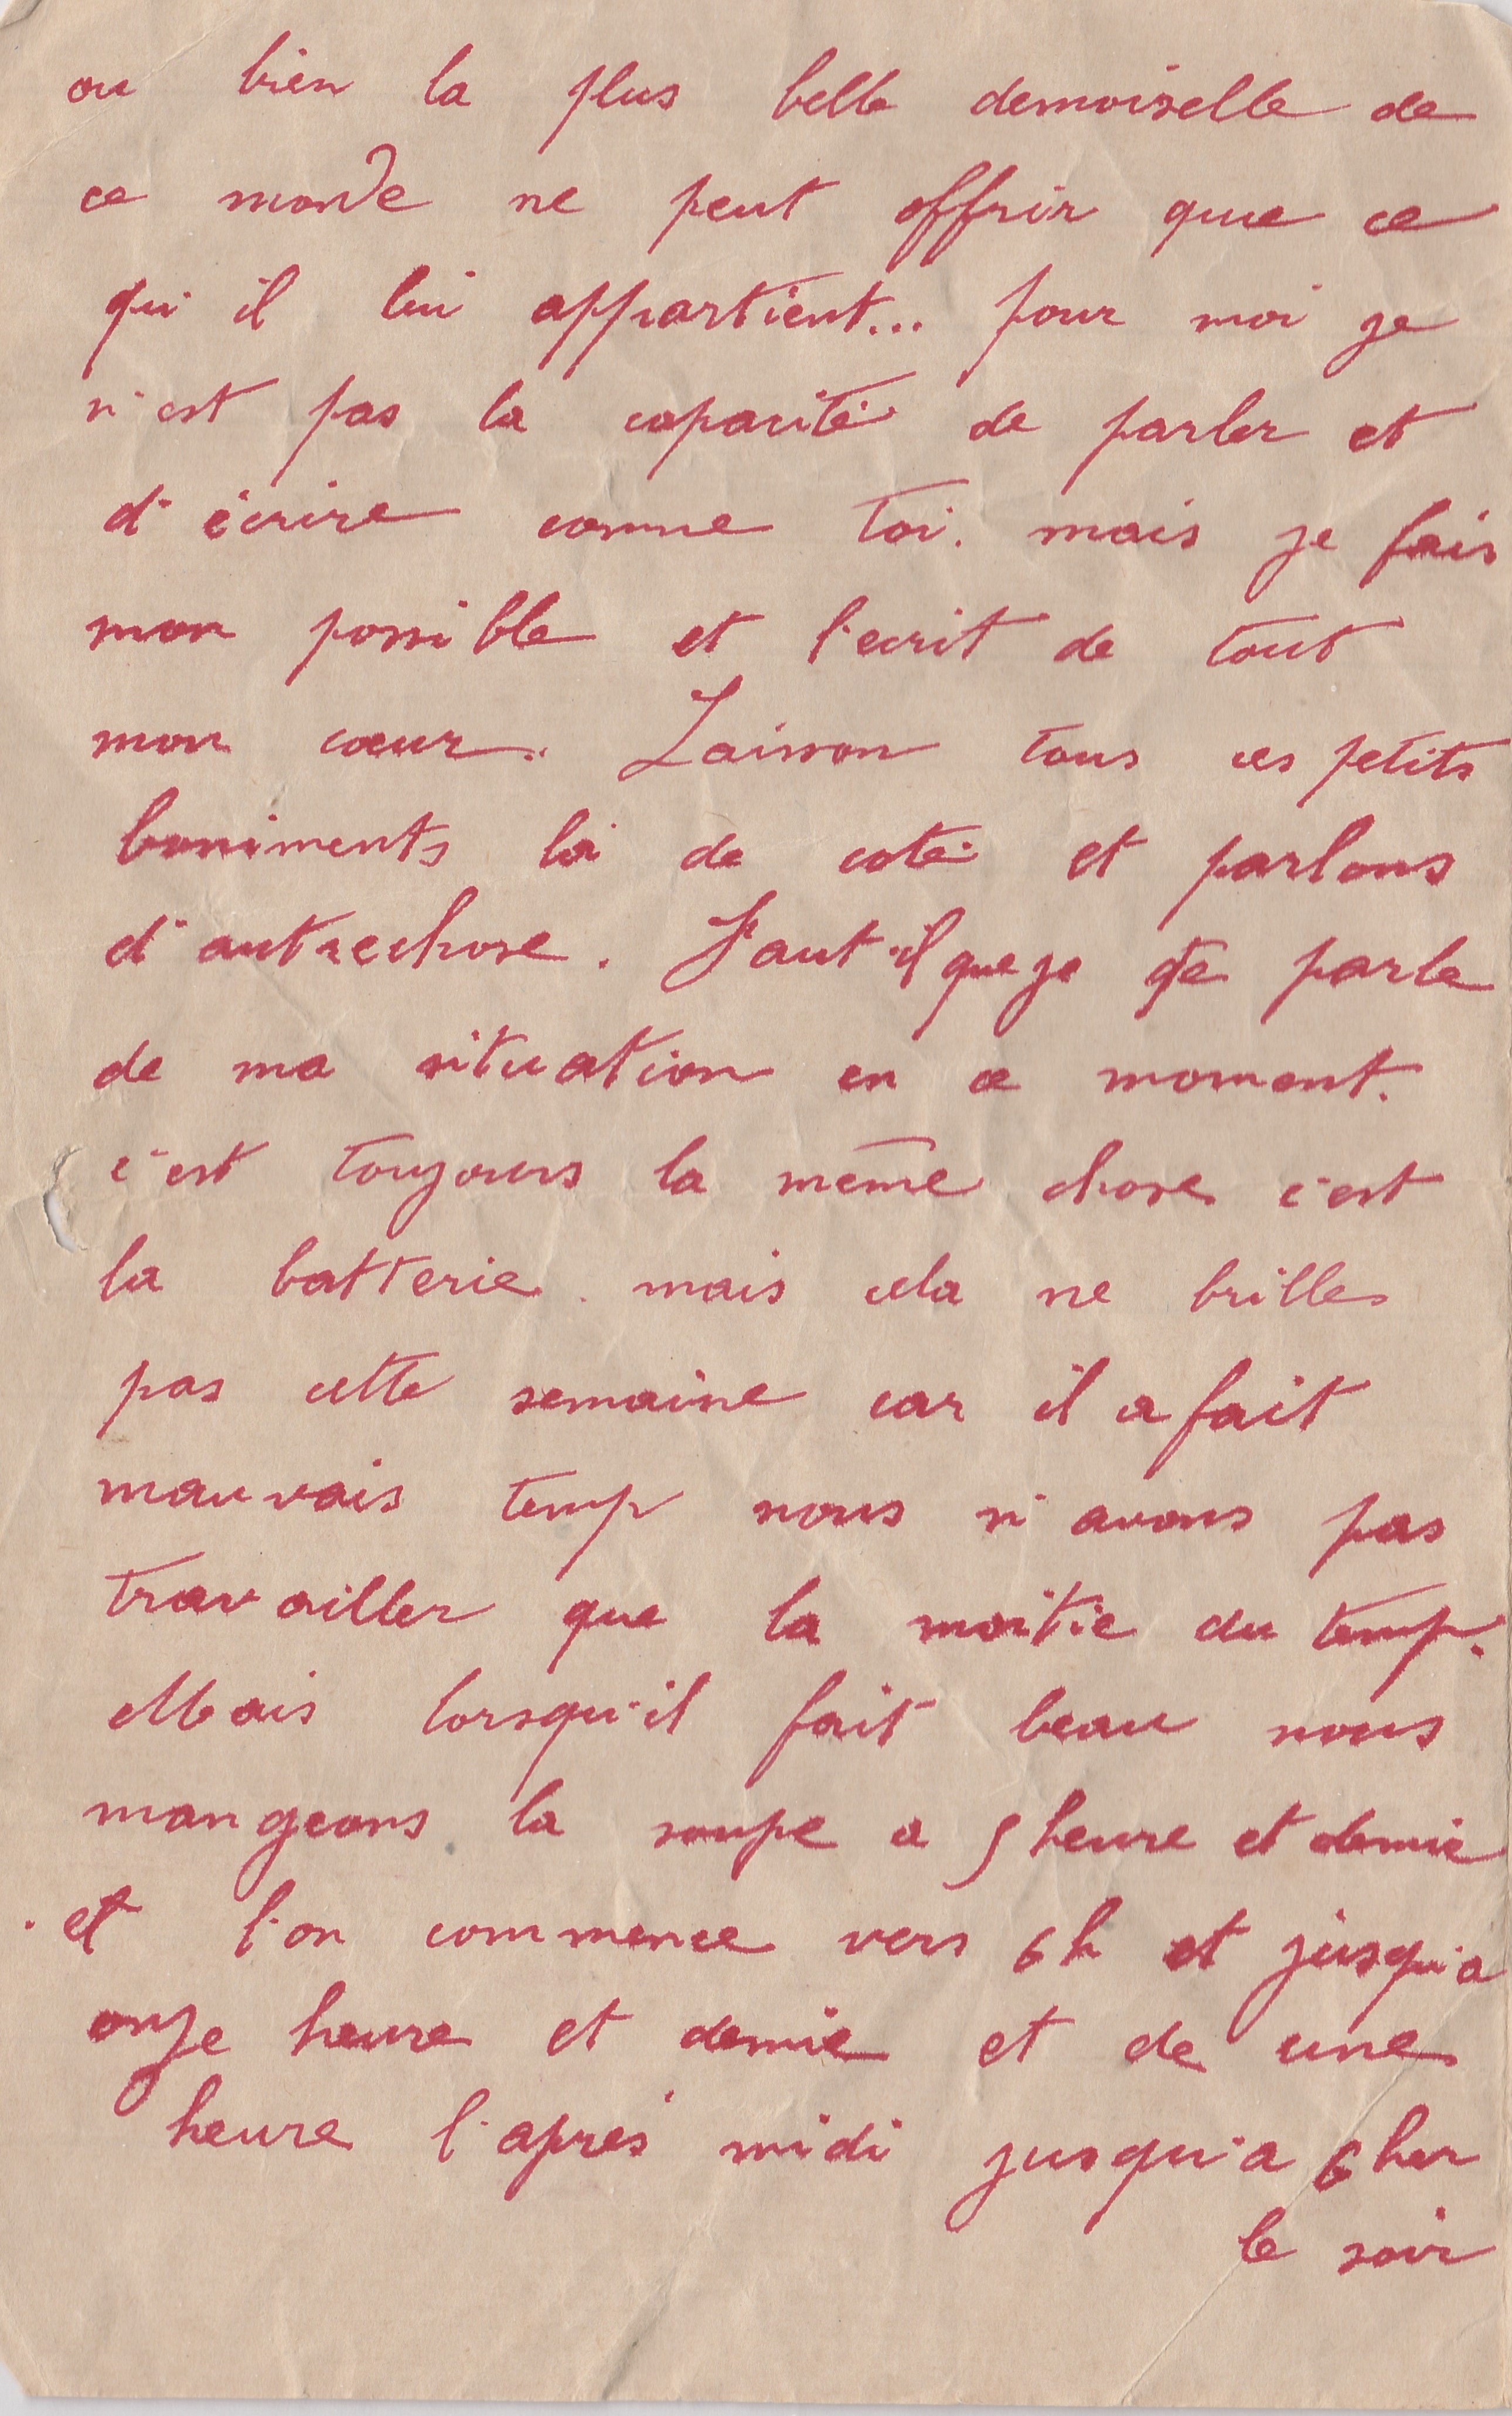 ou bien la plus belle demoiselle de
ce monde ne peut offrir que ce
qu'il lui appartient... pour moi je
n'est pas la capacité de parler et
d'écrire comme toi. mais je fais
mon possible et l'ecrit de tout
mon cœur. Laisson tous ces petits
boniments là de coté et parlons
d'autrechose. Faut-il que je te parle
de ma situation en ce moment.
c'est toujours la même chose c'est
la batterie. mais cela ne brille
pas cette semaine car il a fait
mauvais temp nous n'avons pas
travailler que la moitié du temp.
Mais lorsqu'il fait beau nous
mangeons la soupe a 5 heure et demie
et l'on commence vers 6 h et jusqu'a
onze heure et demie et de une
heure l'après midi jusqu'a 6 her
le soir